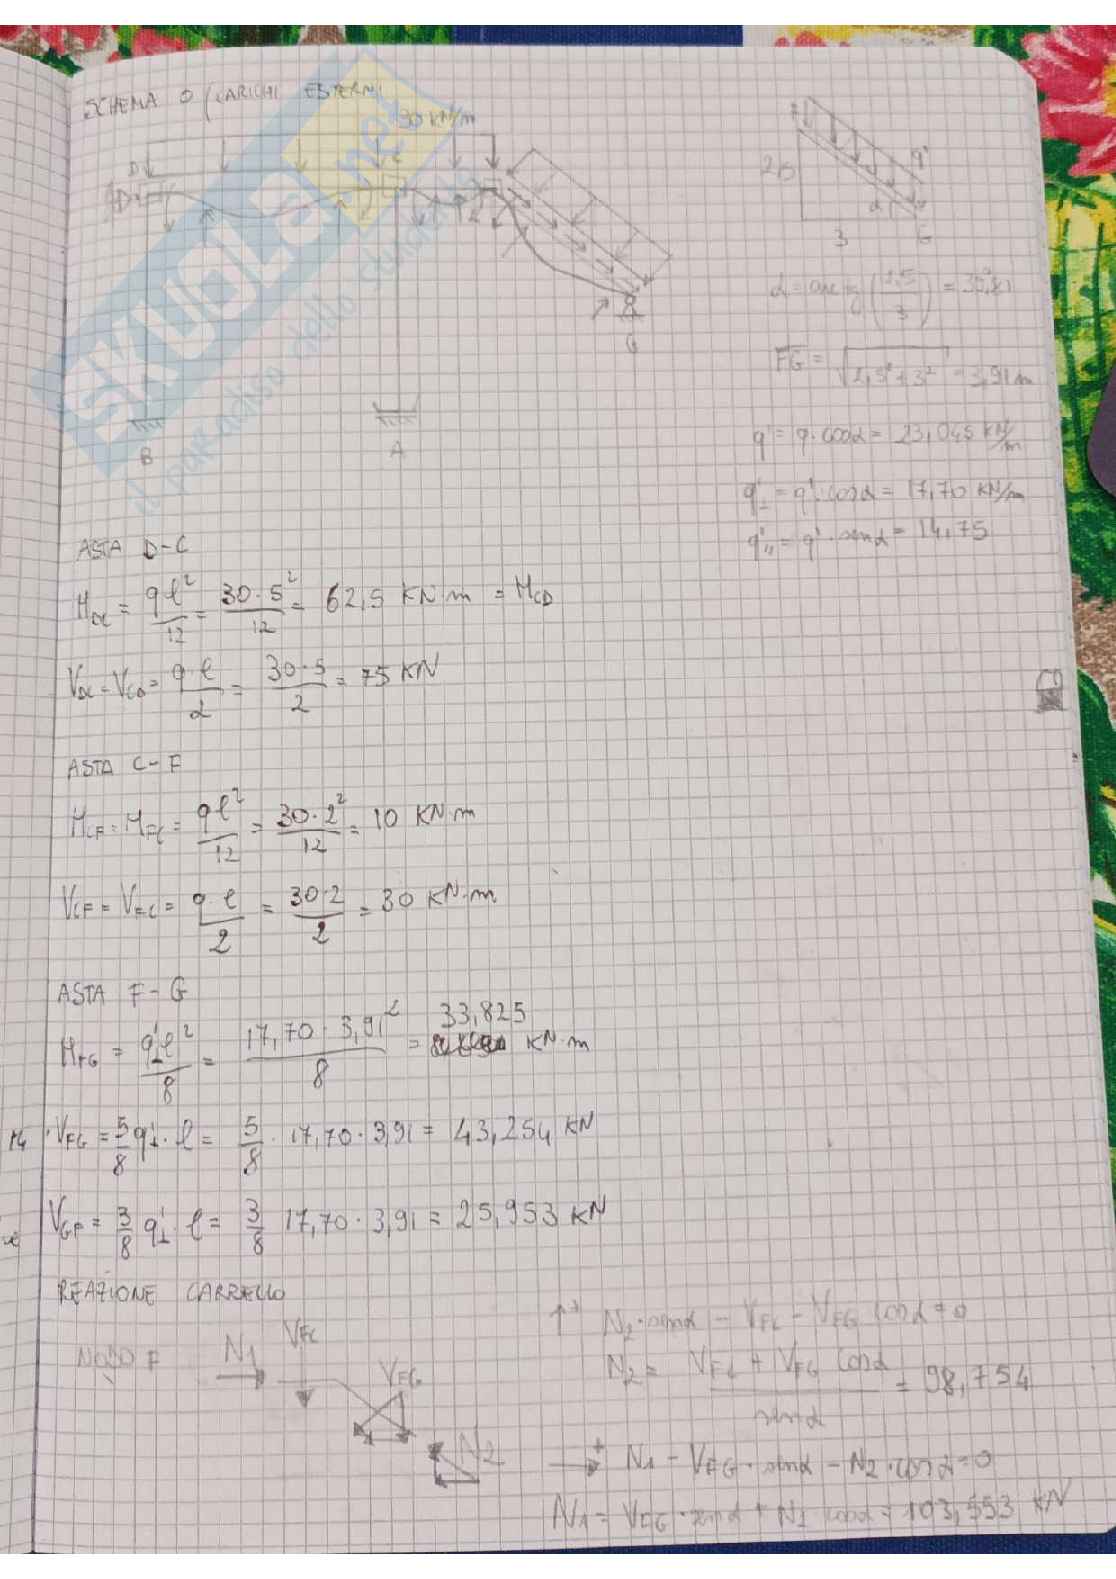 SCHEMA 0 CARICHI ESTERNI
30 KN/m
D
q'
2,5
α
3
G
D
G
α = arctg (2,5 / 3) = 39,81
FG = √2,5² + 3² = 3,91 m
B
A
q' = q · cosα = 23,045 KN/m
q'⊥ = q' · cosα = 17,70 KN/m
q'// = q' · senα = 14,75
SKUOLA.net
il paradiso dello studente
ASTA D-C
M_DC = qℓ²/12 = 30·5²/12 = 62,5 KN·m = M_CD
V_DC = V_CD = q·ℓ/2 = 30·5/2 = 75 KN
ASTA C-F
M_CF = M_FC = qℓ²/12 = 30·2²/12 = 10 KN·m
V_CF = V_FC = q·ℓ/2 = 30·2/2 = 30 KN·m
ASTA F-G
M_FG = q'⊥ℓ²/8 = 17,70 · 3,91²/8 = 33,825 KN·m
V_FG = 5/8 q'⊥ · ℓ = 5/8 · 17,70 · 3,91 = 43,254 KN
V_GF = 3/8 q'⊥ · ℓ = 3/8 17,70 · 3,91 = 25,953 KN
REAZIONE CARRELLO
NODO F
N1
V_FC
V_FG
N2
↑+ N2 · senα - V_FC - V_FG cosα = 0
N2 = V_FC + V_FG cosα / senα = 98,754
→+ N1 - V_FG · senα - N2 · cosα = 0
N1 = V_FG · senα + N2 cosα = 103,553 KN